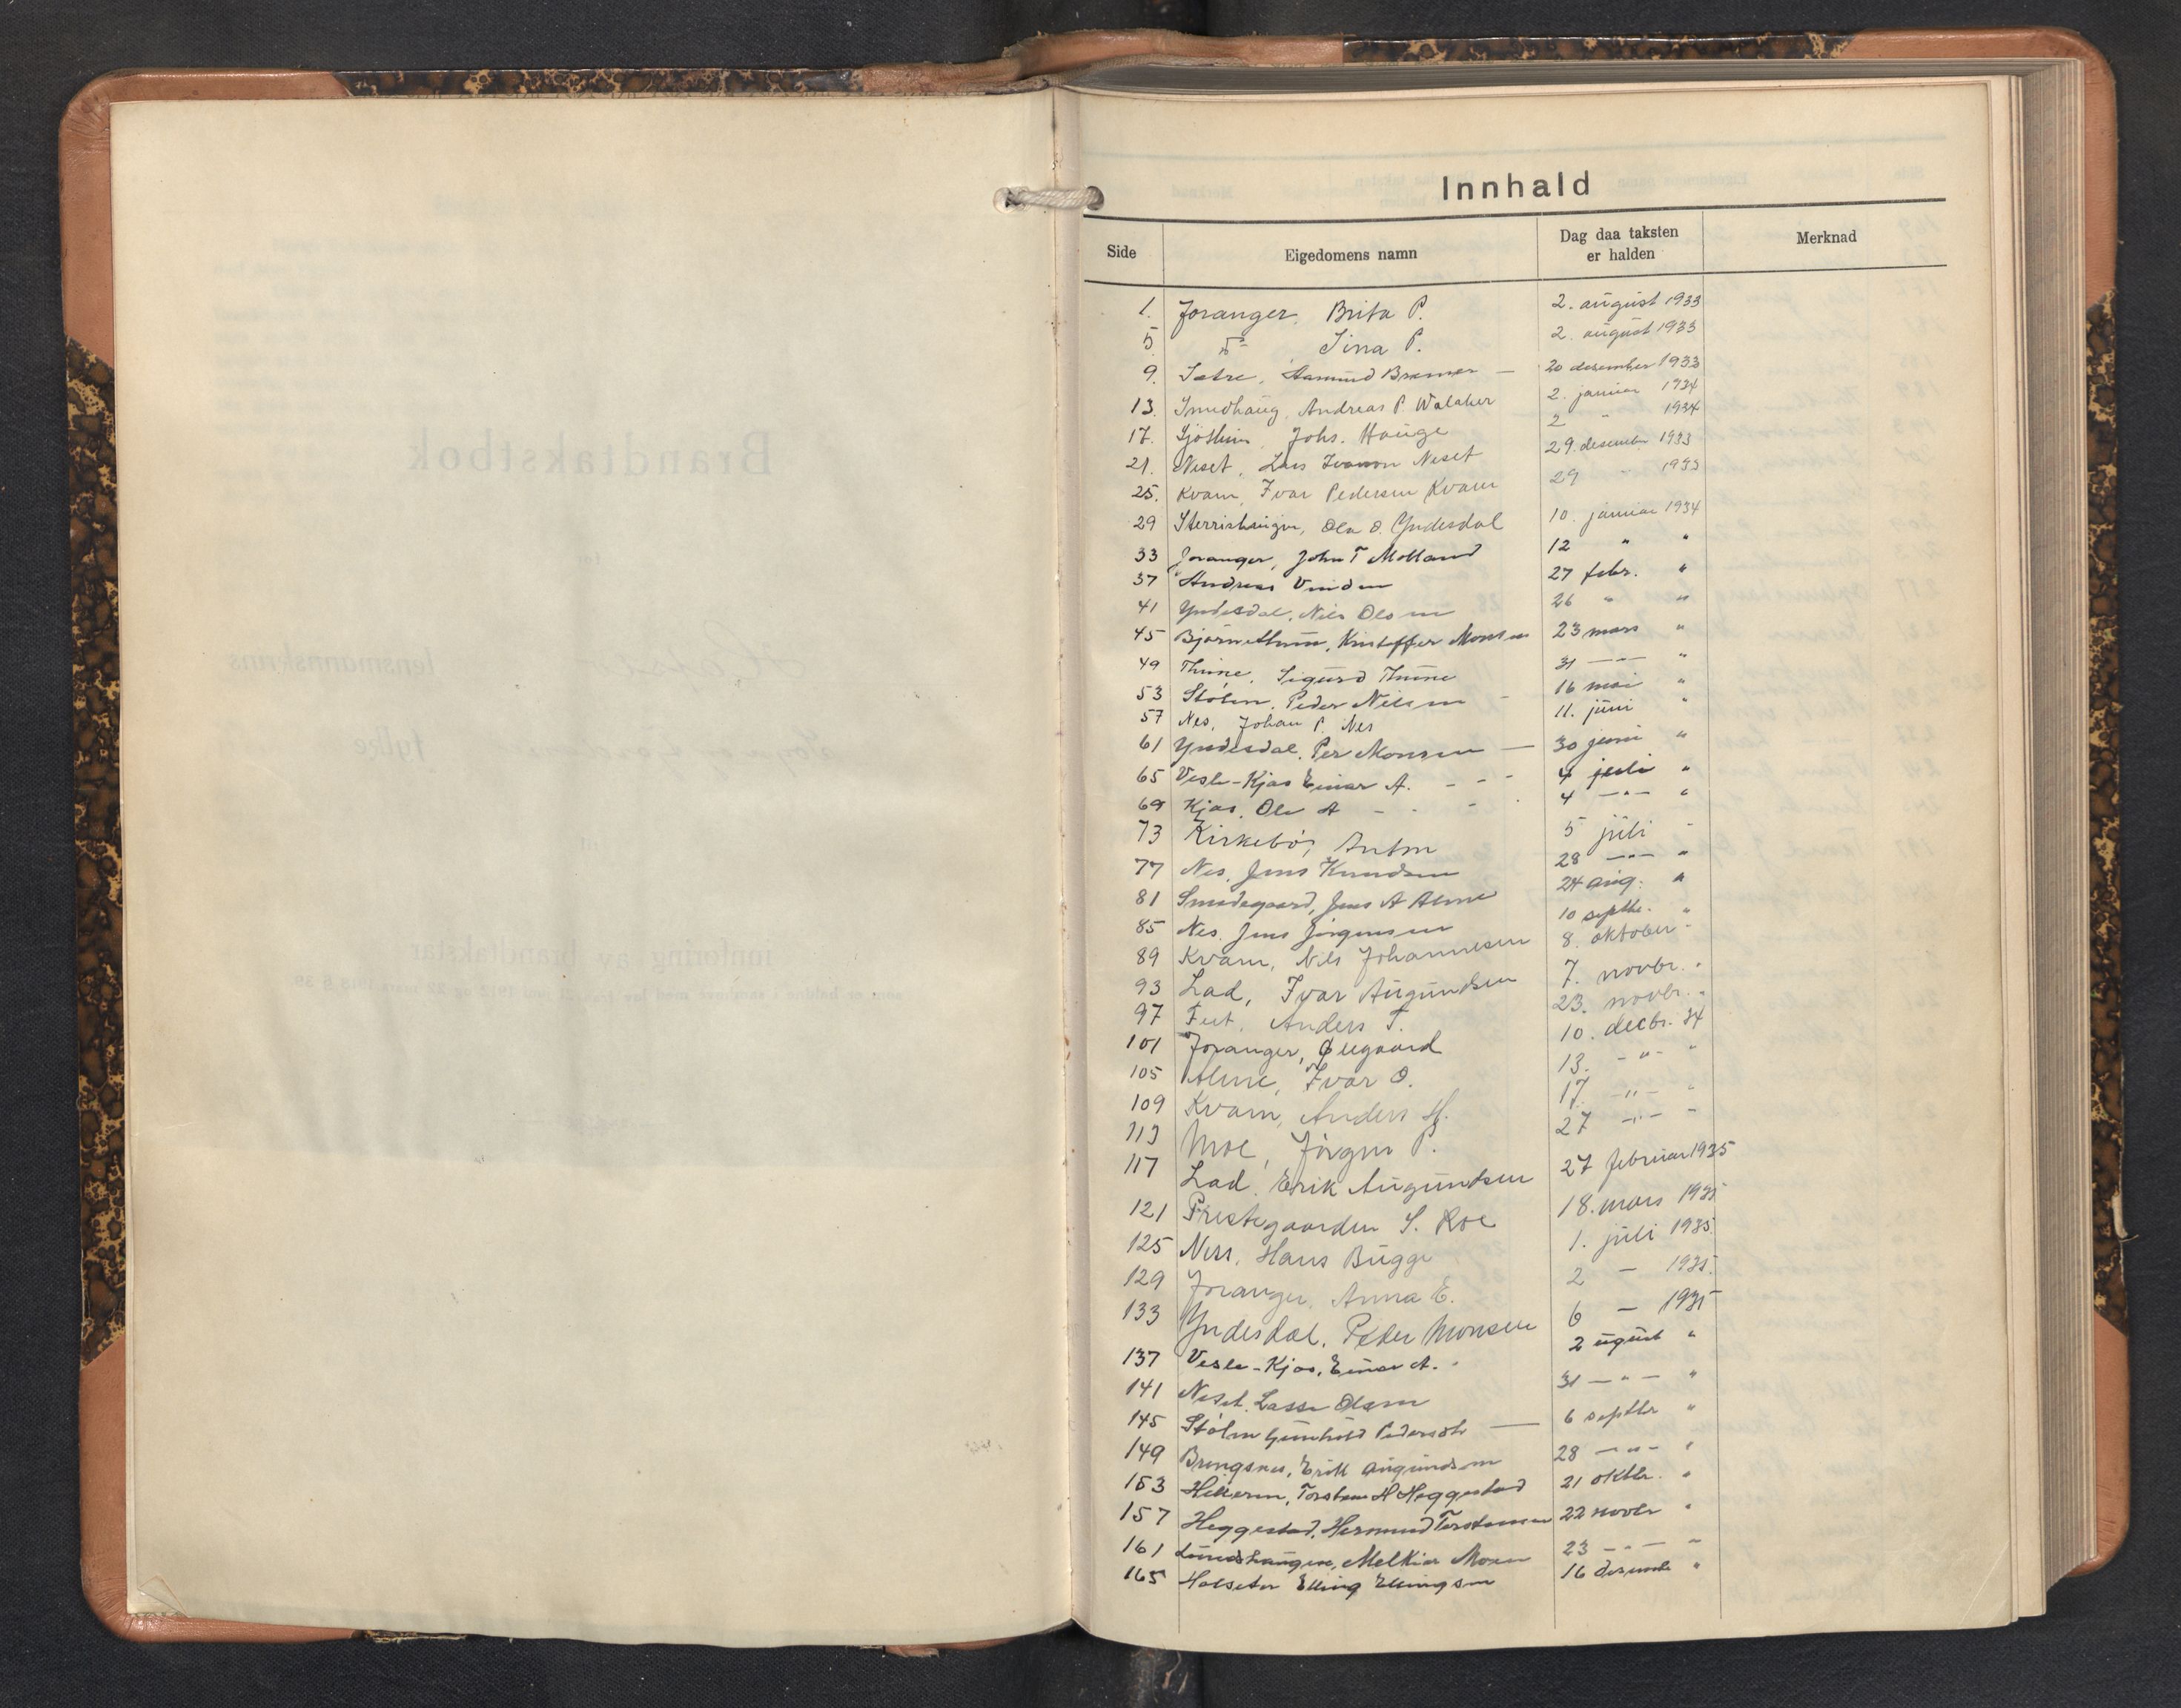 Innhald
Side Eigedomens namn Dag daa taksten er halden Merknad
1. Joranger, Brita P. 2. august 1933
5 do Sina P. 2. august 1933
9. Sætre, Aamund Bremer — 20 desember 1933
13. Smedhaug, Andreas P. Walaker 2. januar 1934
17. Johs. Hauge 2 " 1934
21. Neset, Lars Neset 29. desember 1933
25. Kvam, Ivar Pedersen Kvam 29 " 1933
29 Ola O. Yndesdal 10. januar 1934
33 Joranger, John T Molland 12 " "
37 " Andreas Vinden 27 febr. "
41 Yndesdal, Nils Olsen 26 " "
45 Kristoffer Monsen 23 mars "
49 Thune, Sigurd Thune 31 —"— "
53 Stölen, Peder Nilsen 16 mai "
57 Nes, Johan P. Nes 11. juni "
61 Yndesdal, Per Monsen — 30 juni "
65 Vesle-Kjos Einar A. - - - 4 juli "
69 Kjos, Ole A - - - 4 —"— "
73 Kirkebö, Anton 5 juli "
77 Nes, Jens Knudsen 28 —"— "
81 Smedegaard, Jens A Alme 24 aug. "
85 Nes, Jens Jörgensen 10 septbr. "
89 Kvam, Nils Johannesen 8. oktober "
93 Lad, Ivar Augundsen 7. novbr. "
97 Fuet, Anders T. 23. novbr. "
101 Joranger, Øllegaard 10. decbr. 34
105 Alme, Ivar O. 13. - " - "
109 Kvam, Anders H. 17. - " - "
113 Moe, Jörgen P. 27 - " - "
117 Lad, Erik Augundsen 27 februar 1935
121 Prestegaarden S. Roe 18. mars 1935
125 Ness, Hans Bugge 1. juli 1935.
129 Joranger, Anna E. 2 — 1935.
133 Yndesdal, Peder Monsen 6 — 1935
137 Vesle-Kjos, Einar A. 2 ugust "
141 Neset, Lasse Olsen 31 — " — "
145 Stölen Gunhild Pedersdtr — 6 septbr "
149 Bringsnes, Erik Augundsen 28 — " — "
153 Torstein H Heggestad 21 oktbr. "
157 Heggestad, Hermund Torsteinsen 22 novbr "
161 Lundshaugen, Melkior Moen 23 — " — "
165 Holsæter Elling Ellingsen 16 desembr "